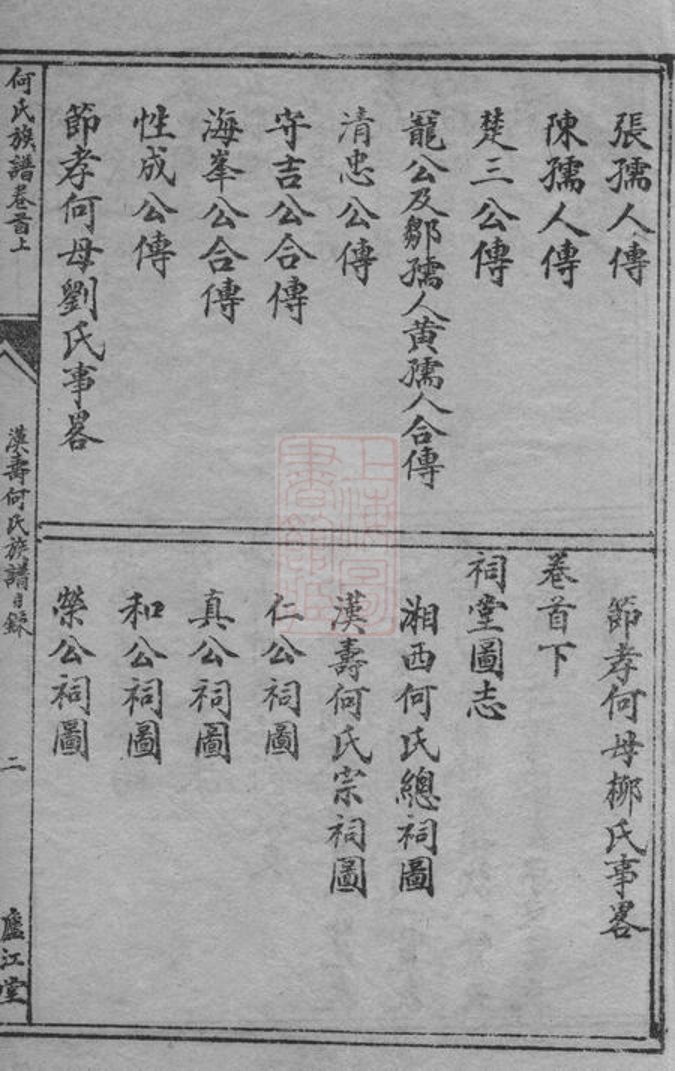 張孺人傳
陳孺人傳
楚三公傳
寵公及鄒孺人黄孺人合傳
清忠公傳
守吉公合傳
海峯公合傳
性成公傳
節孝何母劉氏事畧
節孝何母柳氏事畧
卷首下
祠堂圖志
湘西何氏總祠圖
漢壽何氏宗祠圖
仁公祠圖
真公祠圖
和公祠圖
榮公祠圖
何氏族譜卷首上
漢壽何氏族譜目錄
二
廬江堂
上海圖書館藏